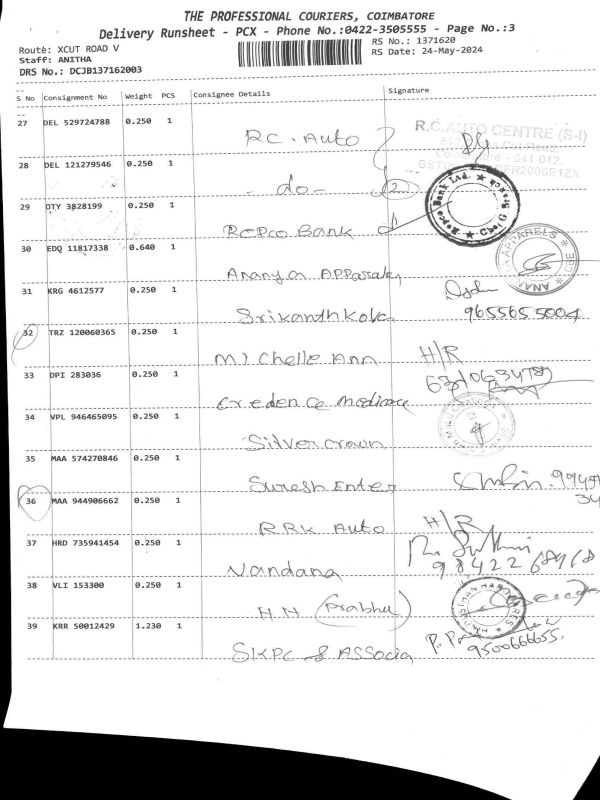 THE PROFESSIONAL COURIERS, COIMBATORE
Delivery Runsheet - PCX - Phone No.:0422-3505555 - Page No.:3
Route: XCUT ROAD V
RS No.: 1371620
Staff: ANITHA
RS Date: 24-May-2024
DRS No.: DCJB137162003
S No Consignment No Weight PCS Consignee Details Signature
27 DEL 529724788 0.250 1 RC. Auto
R.C.AUTO CENTRE (S-I)
641 012.
28 DEL 121279546 0.250 1 - do - 2
29 DTY 3828199 0.250 1 Repco Bank
Repco Bank Ltd.
30 EDQ 11817338 0.640 1 Ananya Apparals
31 KRG 4612577 0.250 1 Srikanth Kola
9655655004
32 TRZ 120060365 0.250 1 Michelle Ann H/R
33 DPI 283036 0.250 1 Credence Medicare
34 VPL 946465095 0.250 1 Silver crown
35 MAA 574270846 0.250 1 Suresh Enter
36 MAA 944906662 0.250 1 RRK Auto H/R
37 HRD 735941454 0.250 1 Nandana
98422 68968
38 VLI 153300 0.250 1 H.H (Prabhu)
39 KRR 50012429 1.230 1 SKPC & Associa
9500666655.